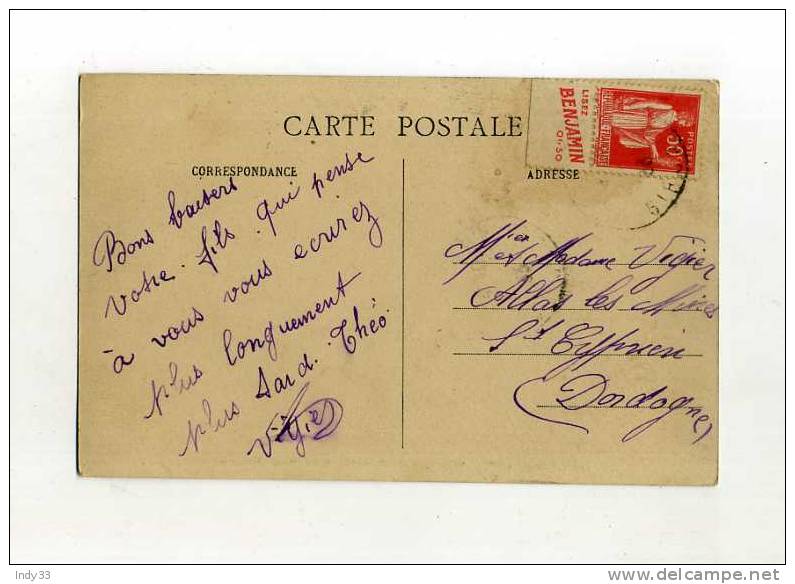 CARTE POSTALE
CORRESPONDANCE
ADRESSE
LISEZ
BENJAMIN
0f.50
POSTES
50c
REPUBLIQUE FRANÇAISE
Bons baisers
votre fils qui pense
à vous vous ecrirez
plus longuement
plus tard. Théo
Vigier
Mr et Madame Vigier
Allas les Mines
St Cyprien
Dordogne
Indy33
delcampe.net